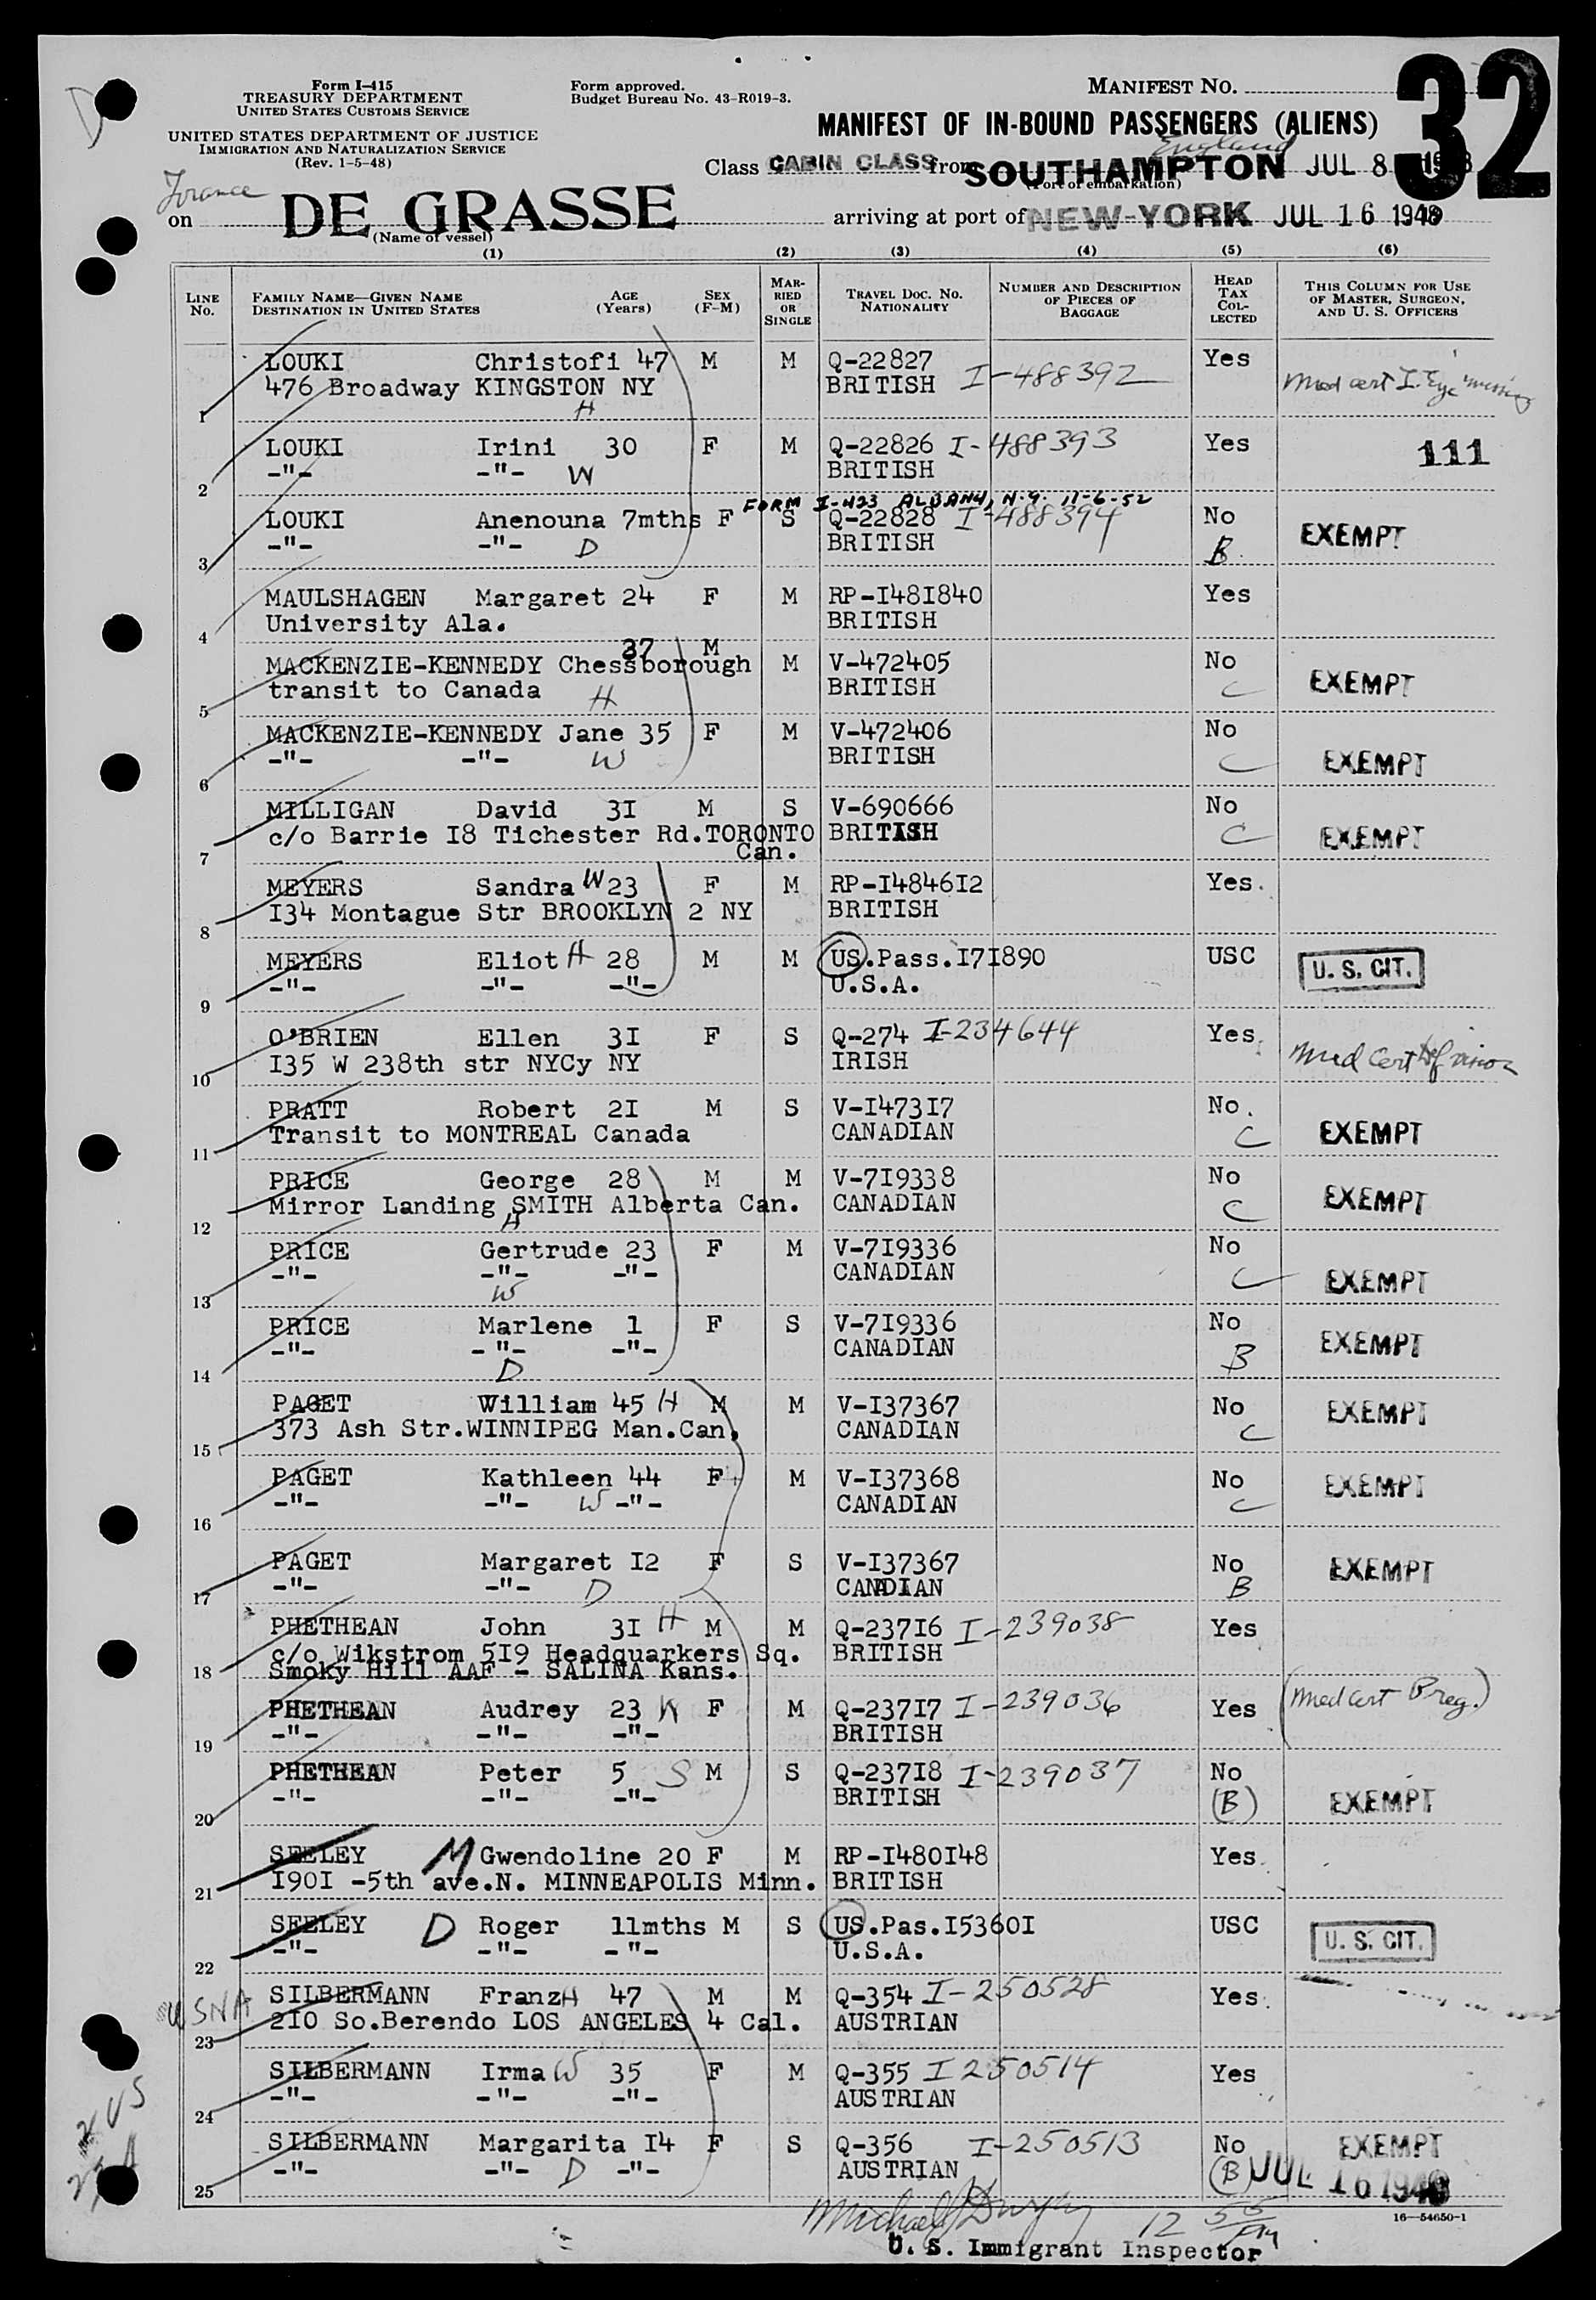 Form I-415
TREASURY DEPARTMENT
UNITED STATES CUSTOMS SERVICE
UNITED STATES DEPARTMENT OF JUSTICE
IMMIGRATION AND NATURALIZATION SERVICE
(Rev. 1-5-48)
Form approved.
Budget Bureau No. 43-R019-3.
MANIFEST NO.
32
MANIFEST OF IN-BOUND PASSENGERS (ALIENS)
England
Class CABIN CLASS from SOUTHAMPTON JUL 8
(Port of embarkation)
France
on DE GRASSE arriving at port of NEW-YORK JUL 16 1948
(Name of vessel)
(1) (2) (3) (4) (5) (6)
LINE NO. FAMILY NAME—GIVEN NAME DESTINATION IN UNITED STATES AGE (Years) SEX (F-M) MARRIED OR SINGLE TRAVEL DOC. NO. NATIONALITY NUMBER AND DESCRIPTION OF PIECES OF BAGGAGE HEAD TAX COLLECTED THIS COLUMN FOR USE OF MASTER, SURGEON, AND U. S. OFFICERS
LOUKI Christofi 47 M M Q-22827 Yes
476 Broadway KINGSTON NY BRITISH I-488392 Med cert I. Eye missing
1 H
LOUKI Irini 30 F M Q-22826 I-488393 Yes 111
-"- -"- W BRITISH
2
FORM I-423 ALBANY, N.Y. 11-6-52
LOUKI Anenouna 7mths F S Q-22828 I-488394 No EXEMPT
-"- -"- D BRITISH B
3
MAULSHAGEN Margaret 24 F M RP-I48I840 Yes
University Ala. BRITISH
4
37 M
MACKENZIE-KENNEDY Chessborough M V-472405 No EXEMPT
transit to Canada H BRITISH C
5
MACKENZIE-KENNEDY Jane 35 F M V-472406 No
-"- -"- W BRITISH C EXEMPT
6
MILLIGAN David 3I M S V-690666 No
c/o Barrie I8 Tichester Rd.TORONTO BRITISH C EXEMPT
7 Can.
MEYERS Sandra W 23 F M RP-I4846I2 Yes.
I34 Montague Str BROOKLYN 2 NY BRITISH
8
MEYERS Eliot H 28 M M US.Pass.I7I890 USC U. S. CIT.
-"- -"- -"- U.S.A.
9
O'BRIEN Ellen 3I F S Q-274 I-234644 Yes
I35 W 238th str NYCy NY IRISH Med Cert
10
PRATT Robert 2I M S V-I473I7 No.
Transit to MONTREAL Canada CANADIAN C EXEMPT
11
PRICE George 28 M M V-7I9338 No
Mirror Landing SMITH Alberta Can. CANADIAN C EXEMPT
12 H
PRICE Gertrude 23 F M V-7I9336 No
-"- -"- -"- CANADIAN C EXEMPT
13 W
PRICE Marlene 1 F S V-7I9336 No
-"- -"- -"- CANADIAN B EXEMPT
14 D
PAGET William 45 H M M V-I37367 No EXEMPT
373 Ash Str.WINNIPEG Man.Can. CANADIAN C
15
PAGET Kathleen 44 F M V-I37368 No EXEMPT
-"- -"- W -"- CANADIAN C
16
PAGET Margaret I2 F S V-I37367 No EXEMPT
-"- -"- D CANADIAN B
17
PHETHEAN John 3I H M M Q-237I6 I-239038 Yes
c/o Wikstrom 5I9 Headquarkers Sq. BRITISH
18 Smoky Hill AAF - SALINA Kans.
PHETHEAN Audrey 23 W F M Q-237I7 I-239036 Yes (Med Cert Preg.)
-"- -"- -"- BRITISH
19
PHETHEAN Peter 5 S M S Q-237I8 I-239037 No
-"- -"- -"- BRITISH (B) EXEMPT
20
SEELEY M Gwendoline 20 F M RP-I480I48 Yes.
I90I -5th ave.N. MINNEAPOLIS Minn. BRITISH
21
SEELEY D Roger 11mths M S US.Pas.I5360I USC U. S. CIT.
-"- -"- -"- U.S.A.
22
USNA SILBERMANN Franz H 47 M M Q-354 I-250528 Yes.
2I0 So.Berendo LOS ANGELES 4 Cal. AUSTRIAN
23
SILBERMANN Irma W 35 F M Q-355 I 250514 Yes
-"- -"- -"- AUSTRIAN
24
2 US
SILBERMANN Margarita I4 F S Q-356 I-250513 No EXEMPT
-"- -"- D -"- AUSTRIAN (B) JUL 16 1948
25
23 A
16—54650-1
Michael 12 55 PM
U. S. Immigrant Inspector